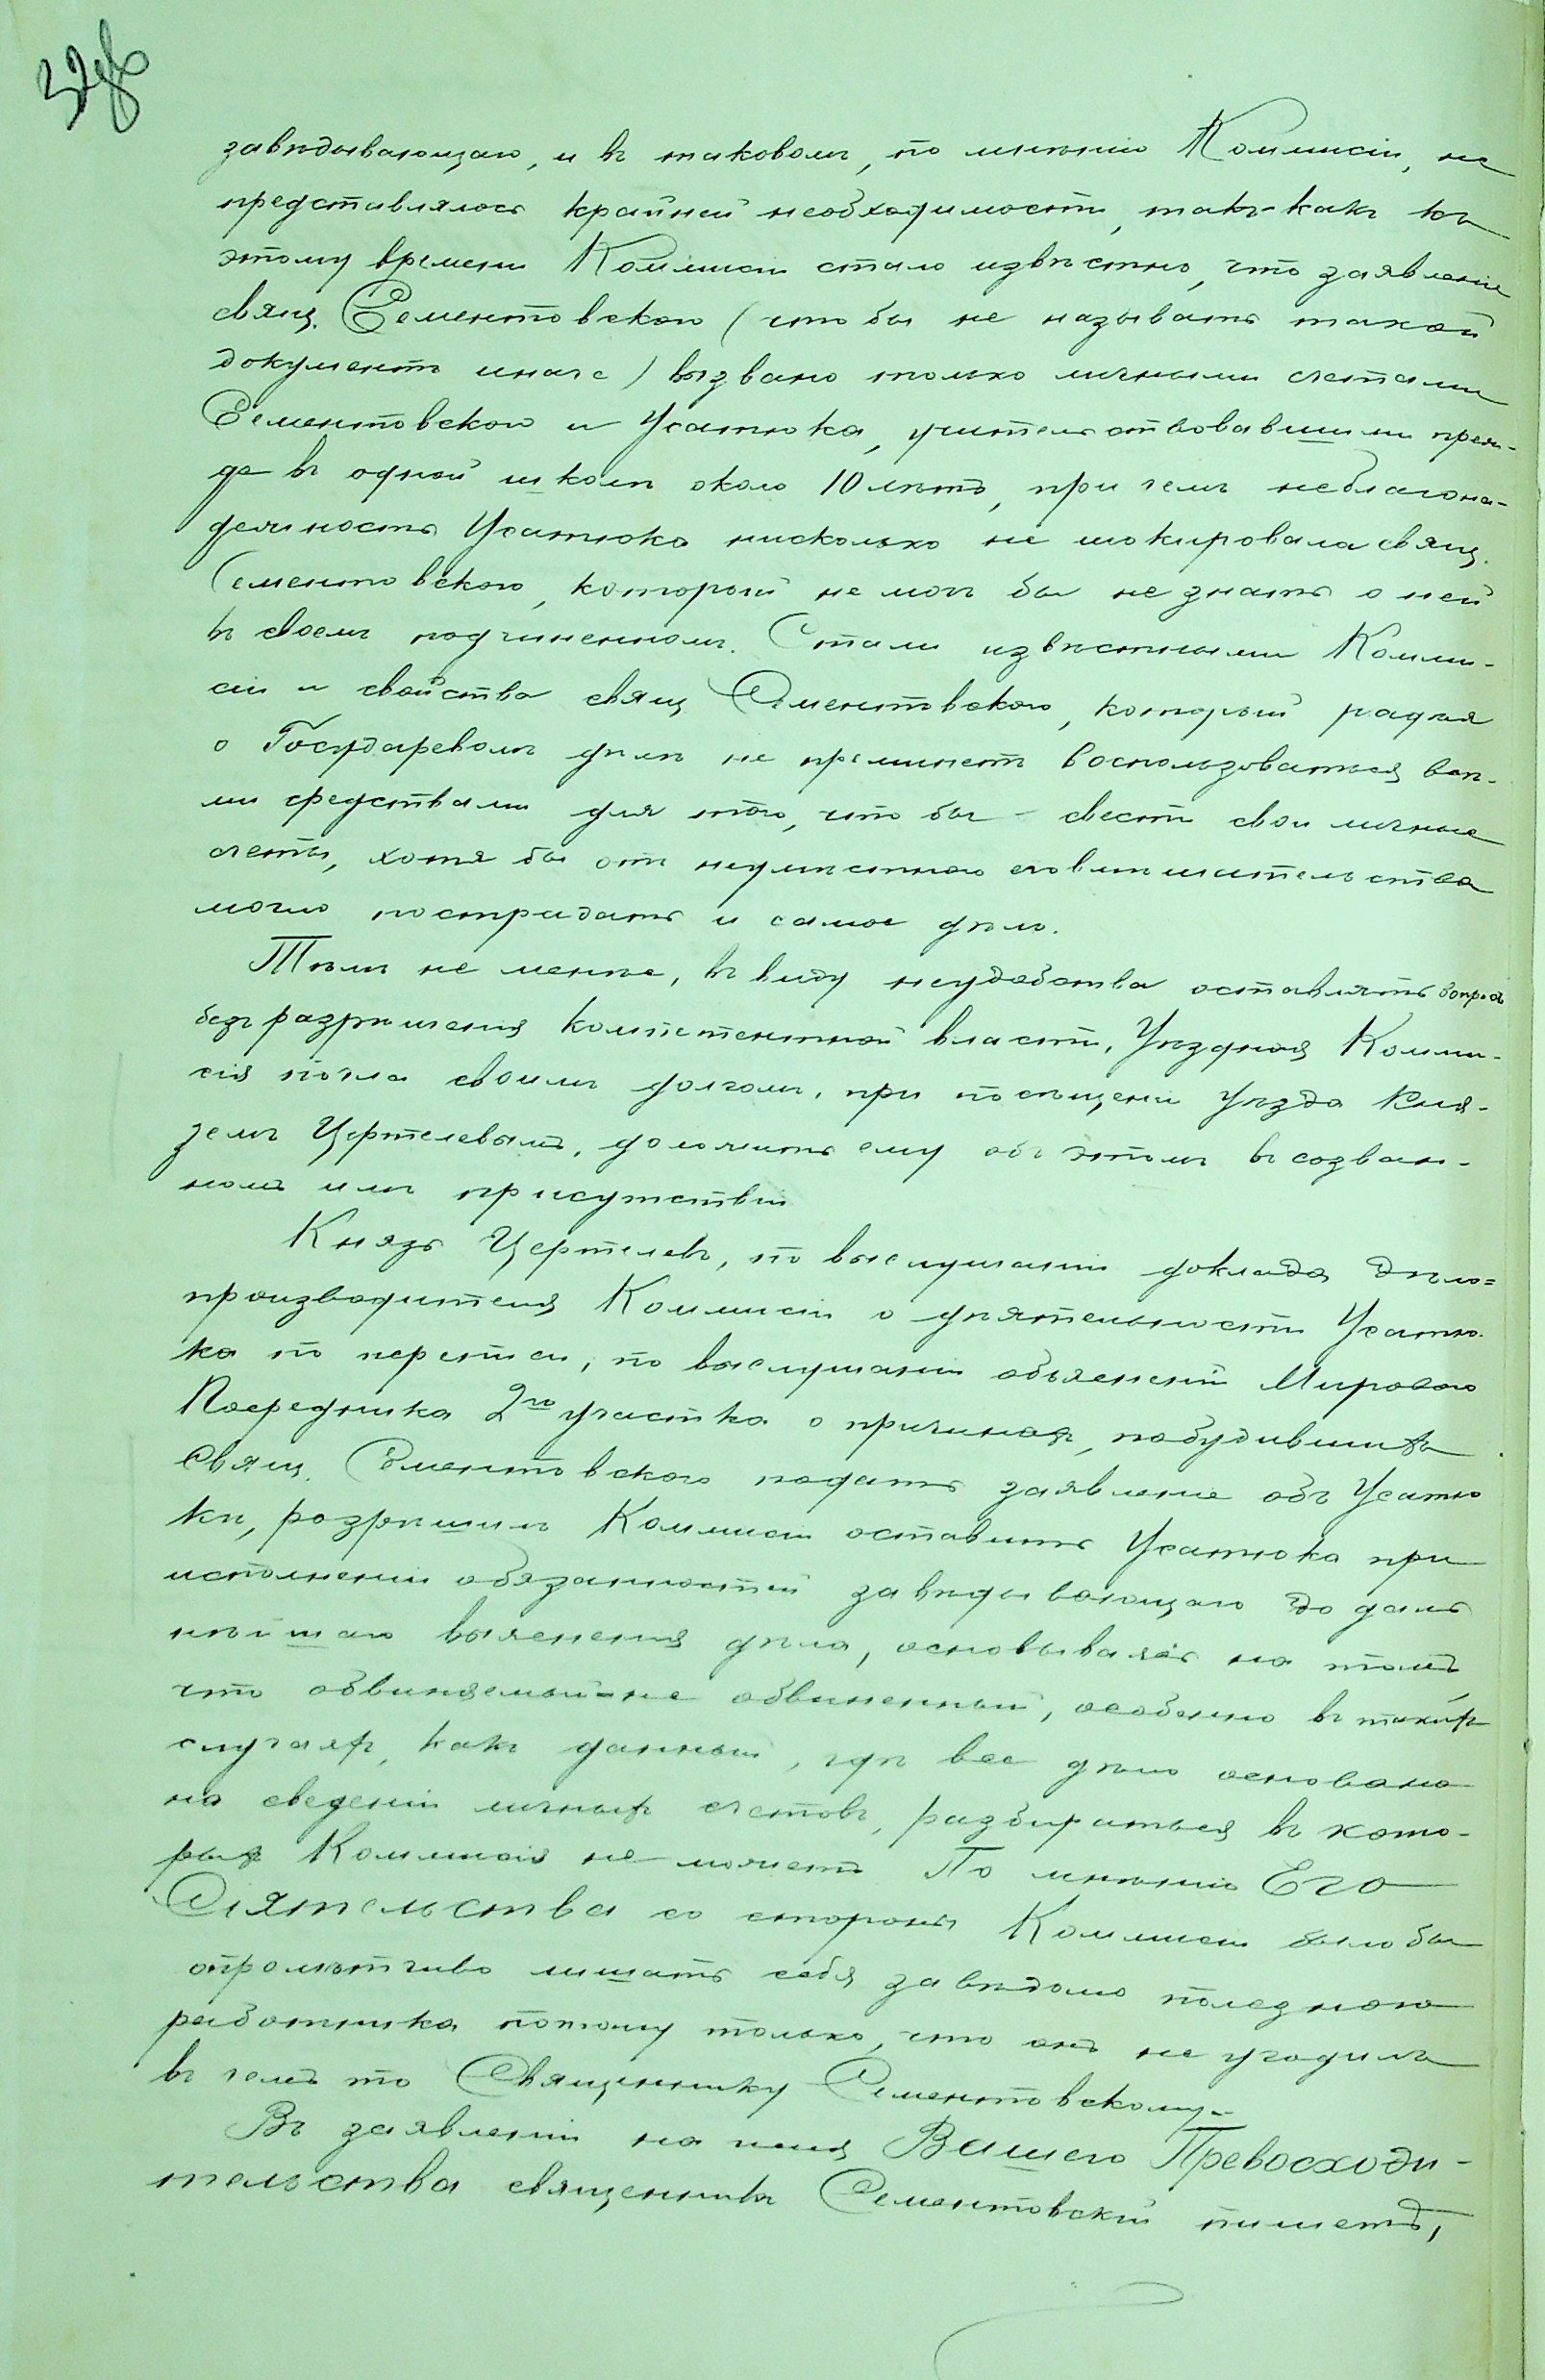 32об
завѣдывающаго, и въ таковомъ, по мнѣнію Коммисіи, не
представлялось крайней необходимости, такъ-какъ къ
этому времени Коммисіи стало извѣстно, что заявленіе
свящ. Сементовскаго (что бы не называть такой
документъ иначе) вызвано только личными счетами
Сементовскаго и Усатюка, учительствовавшими преж-
де въ одной школѣ около 10 лѣтъ, при чемъ неблагона-
дежность Усатюка нисколько не шокировала свящ.
Сементовскаго, который не могъ бы не знать о ней
въ своемъ подчиненномъ. Стали извѣстными Комми-
сіи и свойства свящ Сементовскаго, который радѣя
о Государевомъ дѣлѣ не преминетъ воспользоваться всѣ-
ми средствами для того, что бы свести свои личные
счеты, хотя бы отъ неумѣстнаго его вмѣшательства
могло пострадать и самое дѣло.
Тѣмъ не менѣе, въ виду неудобства оставлять вопросъ
безъ разрѣшенія компетентной власти, Уѣздная Комми-
сія почла своимъ долгомъ, при посѣщеніи уѣзда Кня-
земъ Цертелевымъ, доложить ему объ этомъ въ созван-
номъ имъ присутствіи
Князь Цертелевъ, по выслушаніи доклада Дѣло=
производителя Коммисіи о дѣятельности Усатю-
ка по переписи, по выслушаніи объясненій Мирового
Посредника 2го участка о причинахъ, побудившихъ
Свящ. Сементовскаго подать заявленіе объ Усатю
кѣ, розрѣшилъ Коммисіи оставить Усатюка при
исполненіи обязанностей завѣдывающаго до даль
нѣйшаго выясненія дѣла, основываясь на томъ,
что обвиняемый-не обвиненный, особенно въ такихъ
случаяхъ, какъ данный, гдѣ все дѣло основано
на сведеніи личныхъ счетовъ, разбираться въ кото-
рыхъ Коммисія не можетъ По мнѣнію Его
Сіятельства со стороны Коммисіи было бы
опрометчиво лишать себя завѣдомо полезнаго
работника потому только, что онъ не угодилъ
въ чемъ то Священнику Сементовскому.-
Въ заявленіи на имя Вашего Превосходи-
тельства священникъ Сементовскій пишетъ,